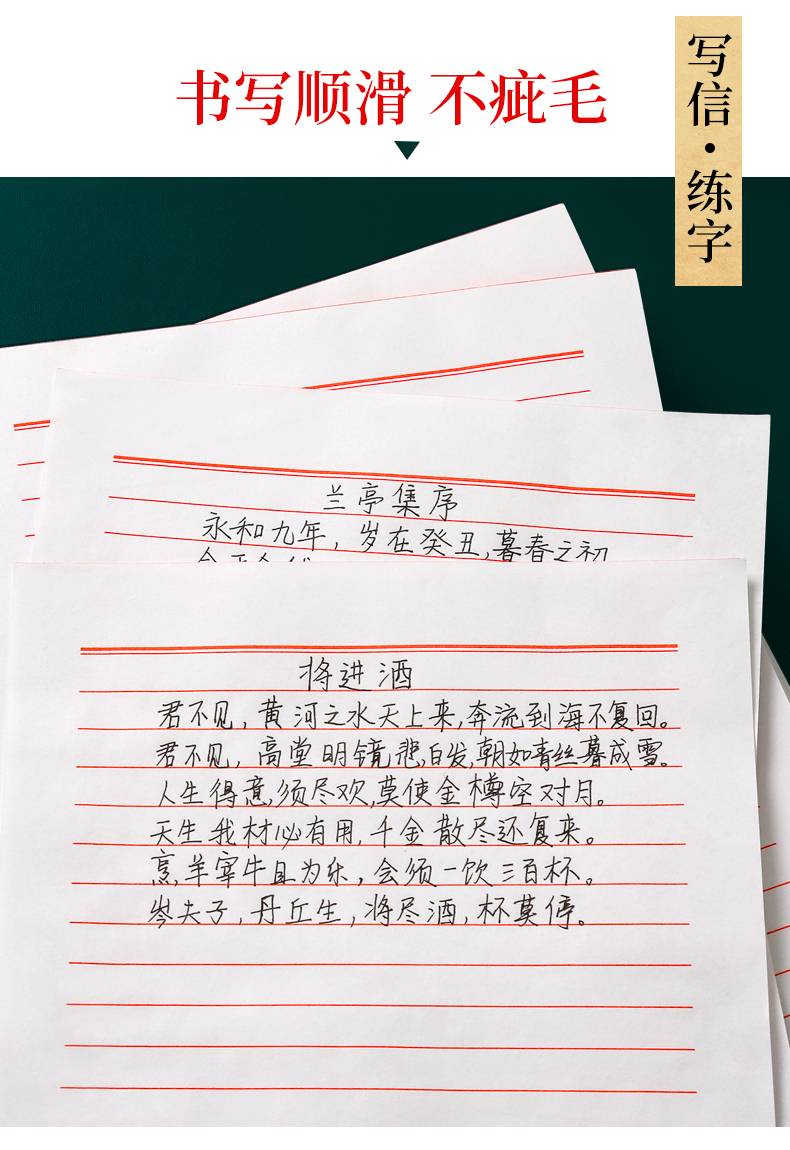 书写顺滑 不疵毛
写信·练字
兰亭集序
永和九年，岁在癸丑，暮春之初
将进酒
君不见，黄河之水天上来，奔流到海不复回。
君不见，高堂明镜悲白发，朝如青丝暮成雪。
人生得意，须尽欢，莫使金樽空对月。
天生我材必有用，千金散尽还复来。
烹羊宰牛且为乐，会须一饮三百杯。
岑夫子，丹丘生，将尽酒，杯莫停。